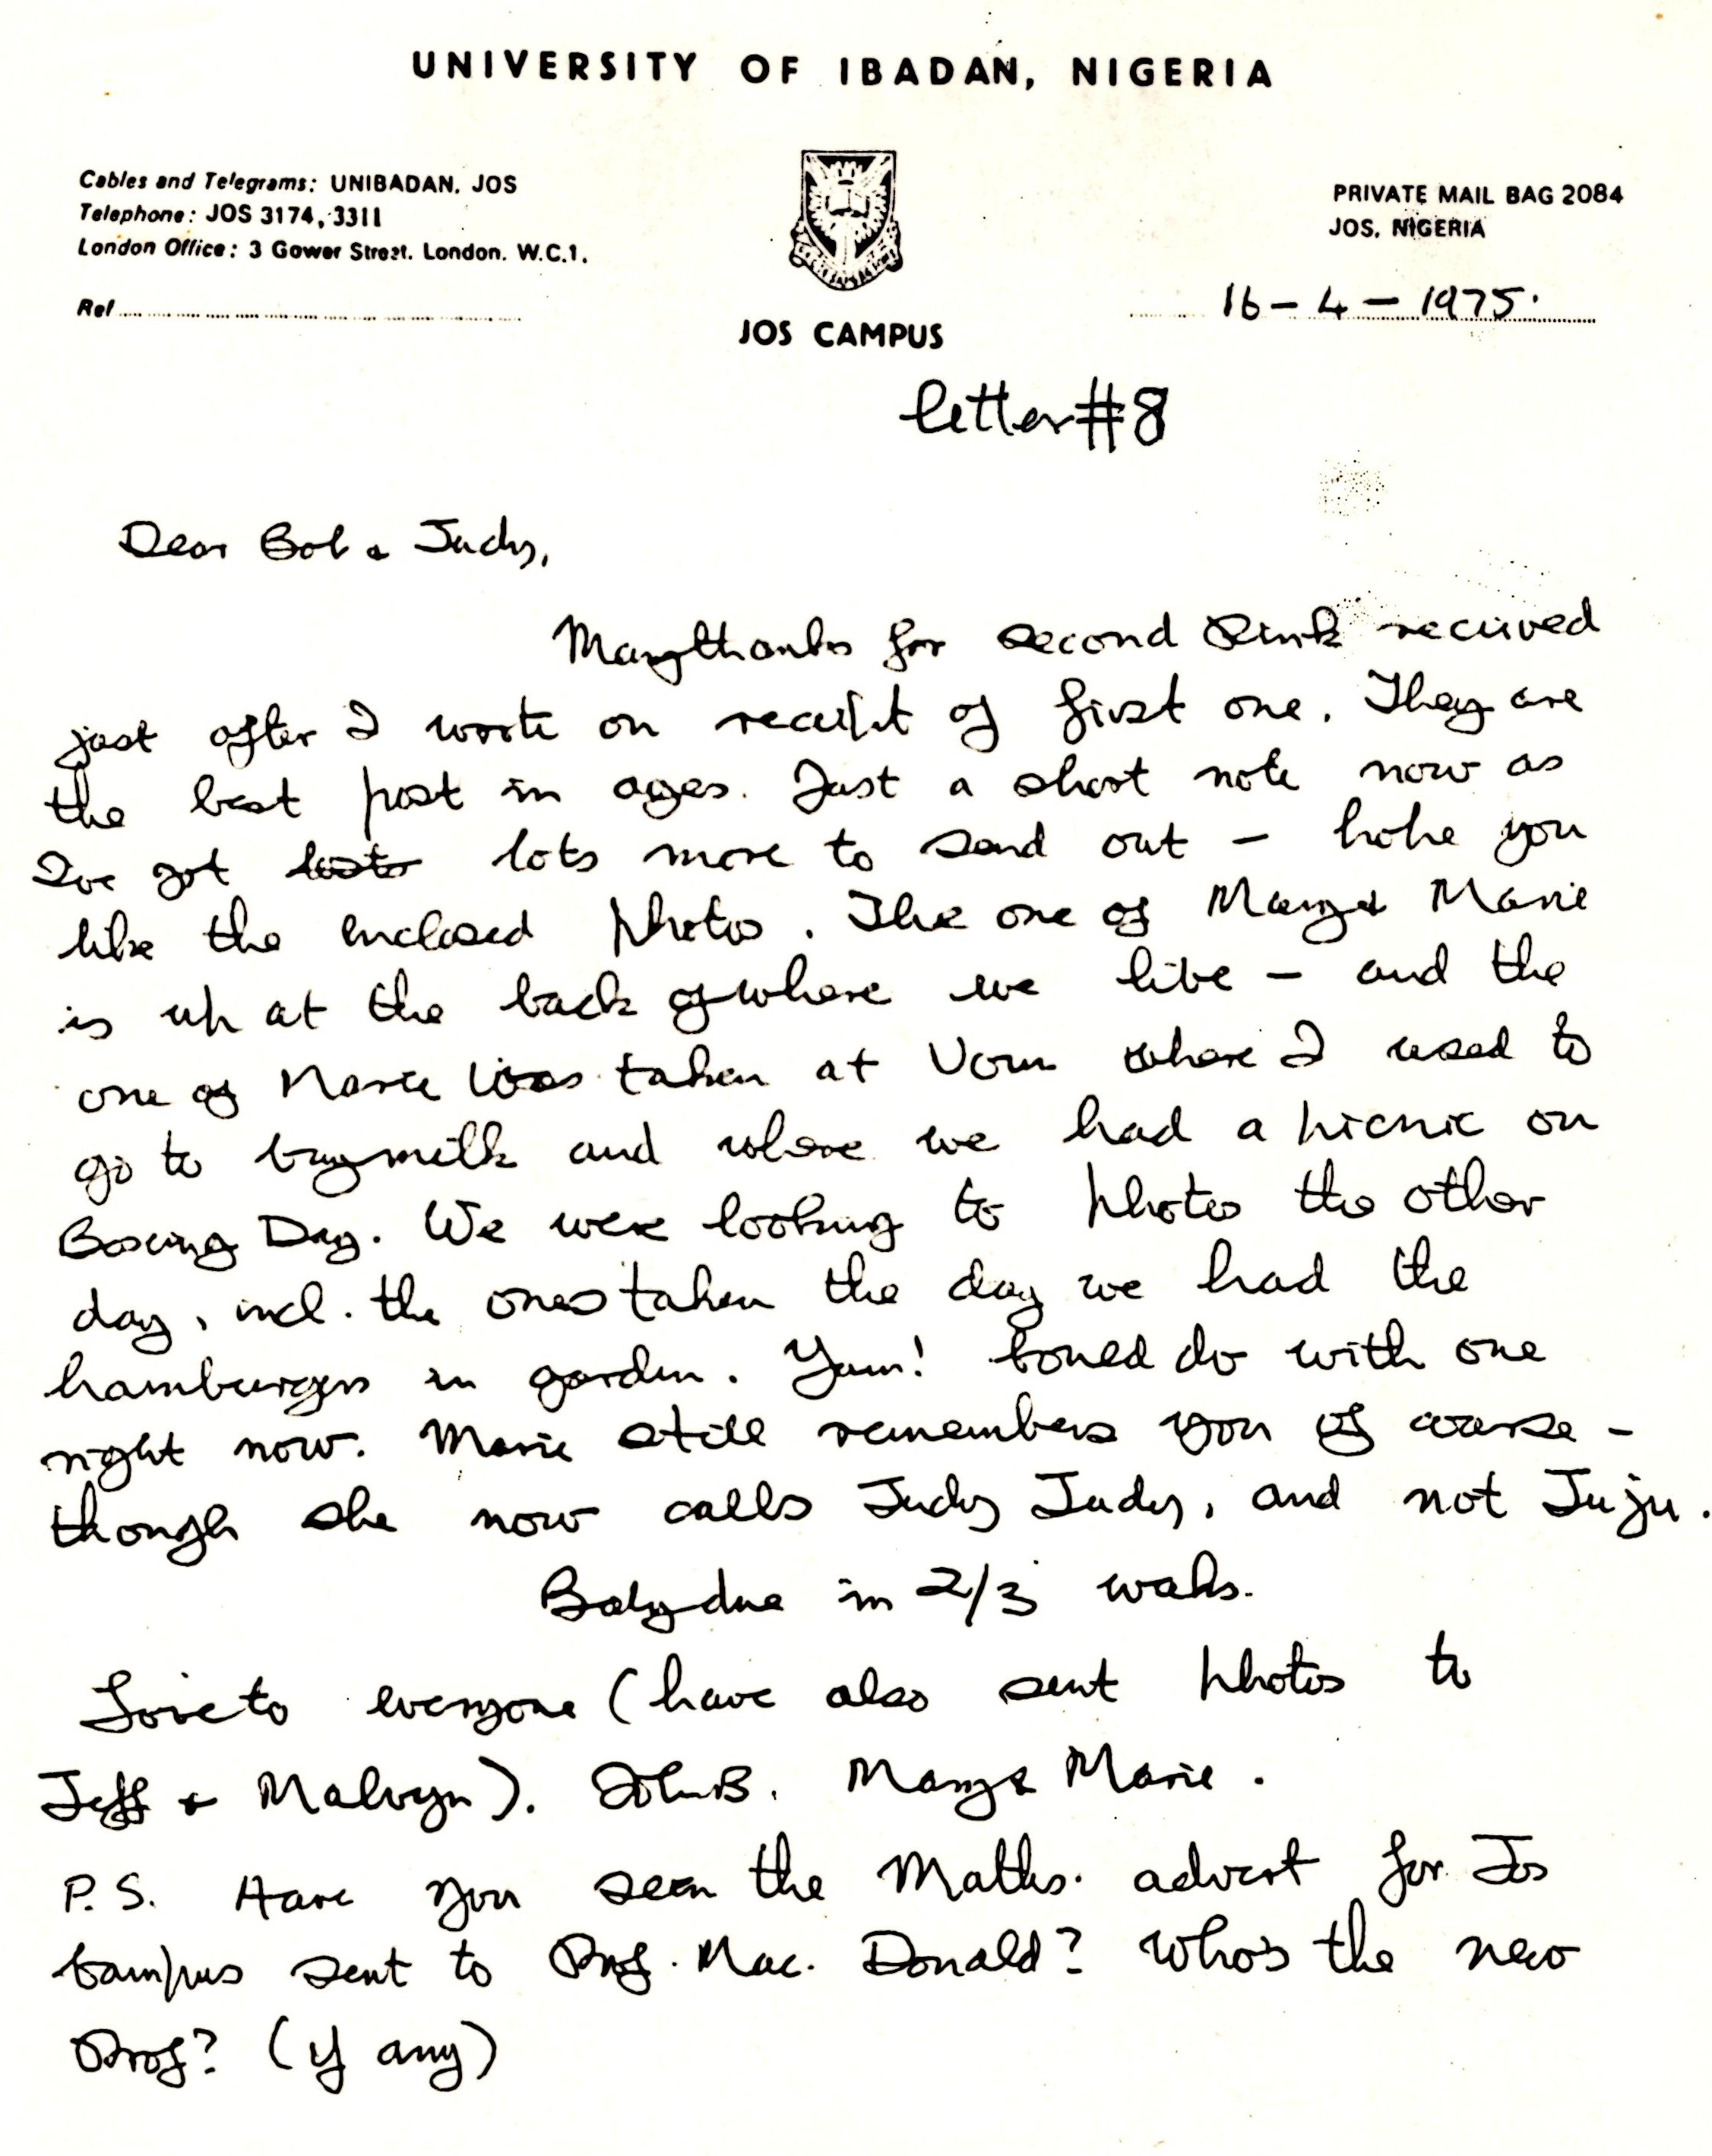 UNIVERSITY OF IBADAN, NIGERIA
Cables and Telegrams: UNIBADAN. JOS
Telephone: JOS 3174, 3311
London Office: 3 Gower Street. London. W.C.1.
PRIVATE MAIL BAG 2084
JOS. NIGERIA
Ref
16-4-1975.
JOS CAMPUS
letter #8
Dear Bob & Judy,
Many thanks for second Pink received
just after I wrote on receipt of first one. They are
the best post in ages. Just a short note now as
I've got lots more to send out - hope you
like the enclosed photos. The one of Mary & Marie
is up at the back of where we live - and the
one of Marie was taken at Vom where I used to
go to buy milk and where we had a picnic on
Boxing Day. We were looking to photos the other
day, incl. the ones taken the day we had the
hamburgers in garden. Yum! Could do with one
right now. Marie still remembers you of course -
though she now calls Judy Judy, and not Juju.
Baby due in 2/3 weeks.
Love to everyone (have also sent photos to
Jeff & Malvyn). John B. Mary & Marie.
P.S. Have you seen the Maths. advert for Jos
Campus sent to Prof. Mac. Donald? Who's the new
Prof? (if any)